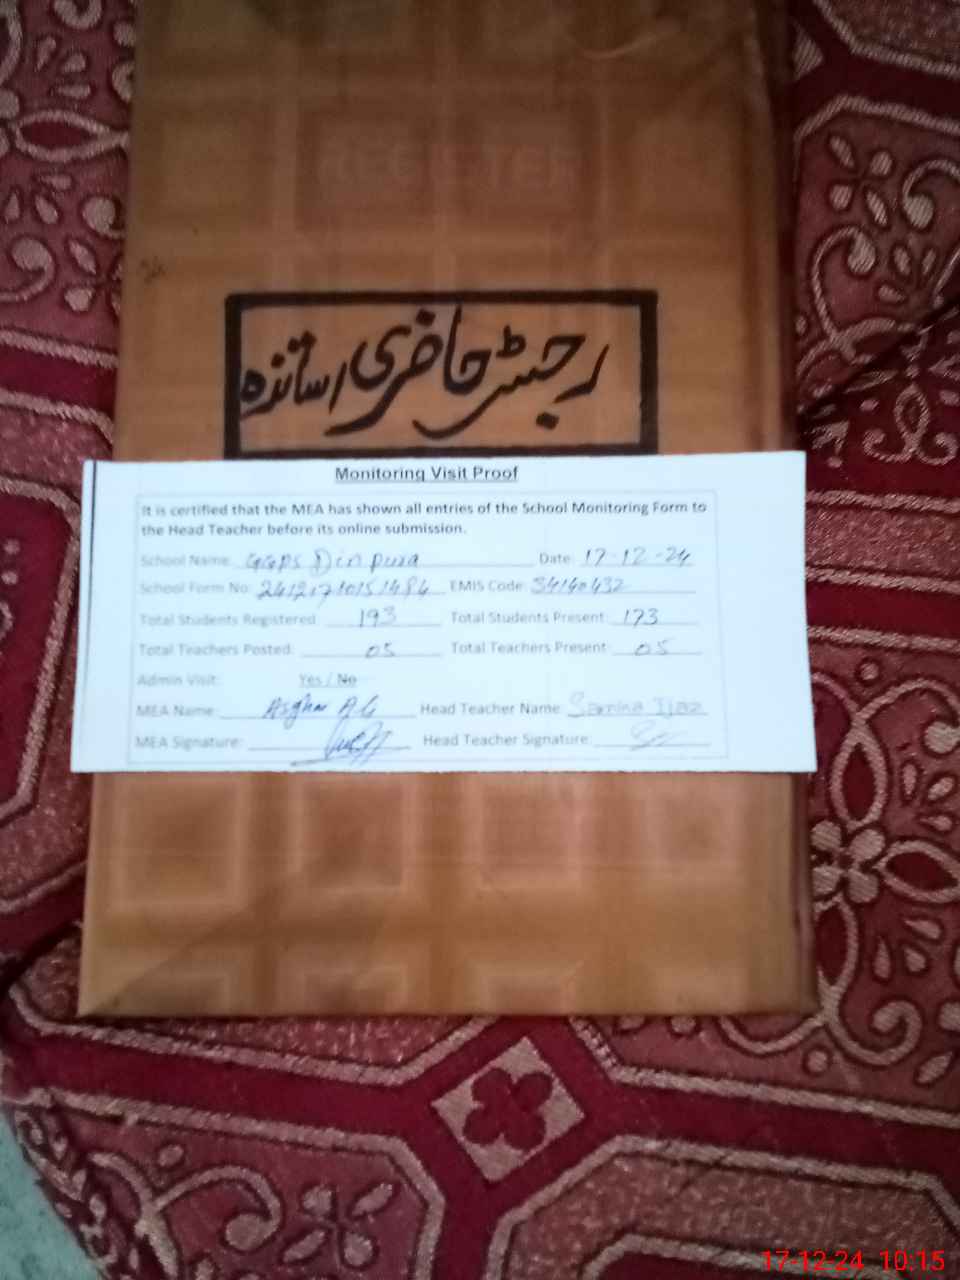 REGISTER
رجسٹر حاضری اساتذہ
Monitoring Visit Proof
It is certified that the MEA has shown all entries of the School Monitoring Form to
the Head Teacher before its online submission.
School Name: GGPS Dinpura Date: 17-12-24
School Form No: EMIS Code: 34140432
Total Students Registered 193 Total Students Present: 173
Total Teachers Posted: 05 Total Teachers Present: 05
Admin Visit: Yes / No
MEA Name: Asghar Ali Head Teacher Name: Samina Ijaz
MEA Signature: Head Teacher Signature:
17-12-24 10:15